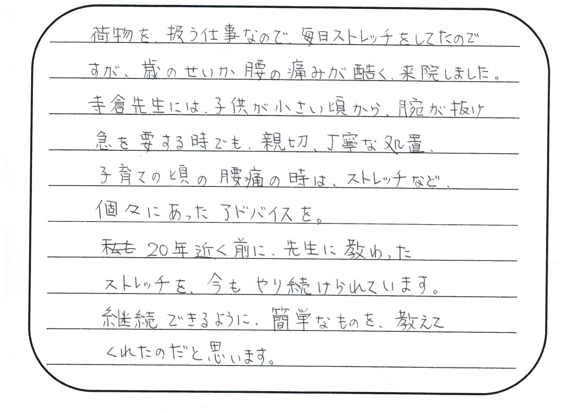 荷物を、扱う仕事なので、毎日ストレッチをしてたので
すが、歳のせいか腰の痛みが酷く、来院しました。
寺倉先生には、子供が小さい頃から、腕が抜け
急を要する時でも、親切、丁寧な処置、
子育ての頃の腰痛の時は、ストレッチなど、
個々にあったアドバイスを。
私も 20年近く前に、先生に教わった
ストレッチを、今も やり続けられています。
継続できるように、簡単なものを、教えて
くれたのだと思います。